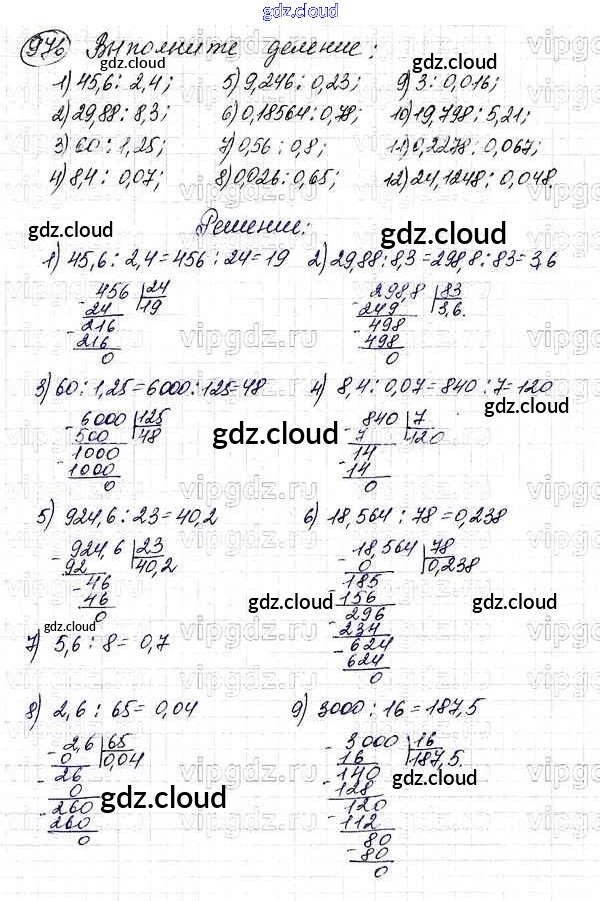 gdz.cloud
976 Выполните деление:
1) 45,6 : 2,4; 5) 9,246 : 0,23; 9) 3 : 0,016;
2) 29,88 : 8,3; 6) 0,18564 : 0,78; 10) 19,798 : 5,21;
3) 60 : 1,25; 7) 0,56 : 0,8; 11) 0,2278 : 0,067;
4) 8,4 : 0,07; 8) 0,026 : 0,65; 12) 24,1248 : 0,048.
Решение:
1) 45,6 : 2,4 = 456 : 24 = 19 2) 29,88 : 8,3 = 298,8 : 83 = 3,6
- 456 24 - 298,8 83
24 19 249 3,6.
- 216 - 498
216 498
0 0
3) 60 : 1,25 = 6000 : 125 = 48 4) 8,4 : 0,07 = 840 : 7 = 120
- 6000 125 - 840 7
500 48 7 120
- 1000 - 14
1000 14
0 0
5) 924,6 : 23 = 40,2 6) 18,564 : 78 = 0,238
- 924,6 23 - 18,564 78
92 40,2 0 0,238
- 46 - 185
46 156
0 - 296
234
7) 5,6 : 8 = 0,7 - 624
624
0
8) 2,6 : 65 = 0,04 9) 3000 : 16 = 187,5
- 2,6 65 - 3000 16
0 0,04 16 187,5.
- 26 - 140
0 128
- 260 - 120
260 112
0 - 80
80
0